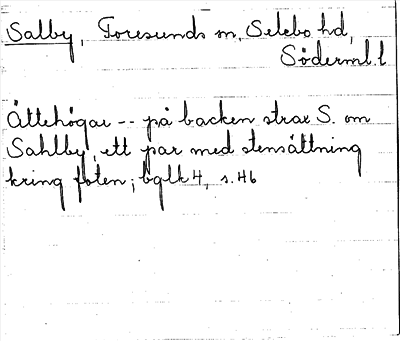 Salby, Toresunds sn, Selebo hd,
Söderml. l.
Ättehögar -- på backen strax S. om
Sahlby, ett par med stensättning
kring foten; bglk 4, s. 46